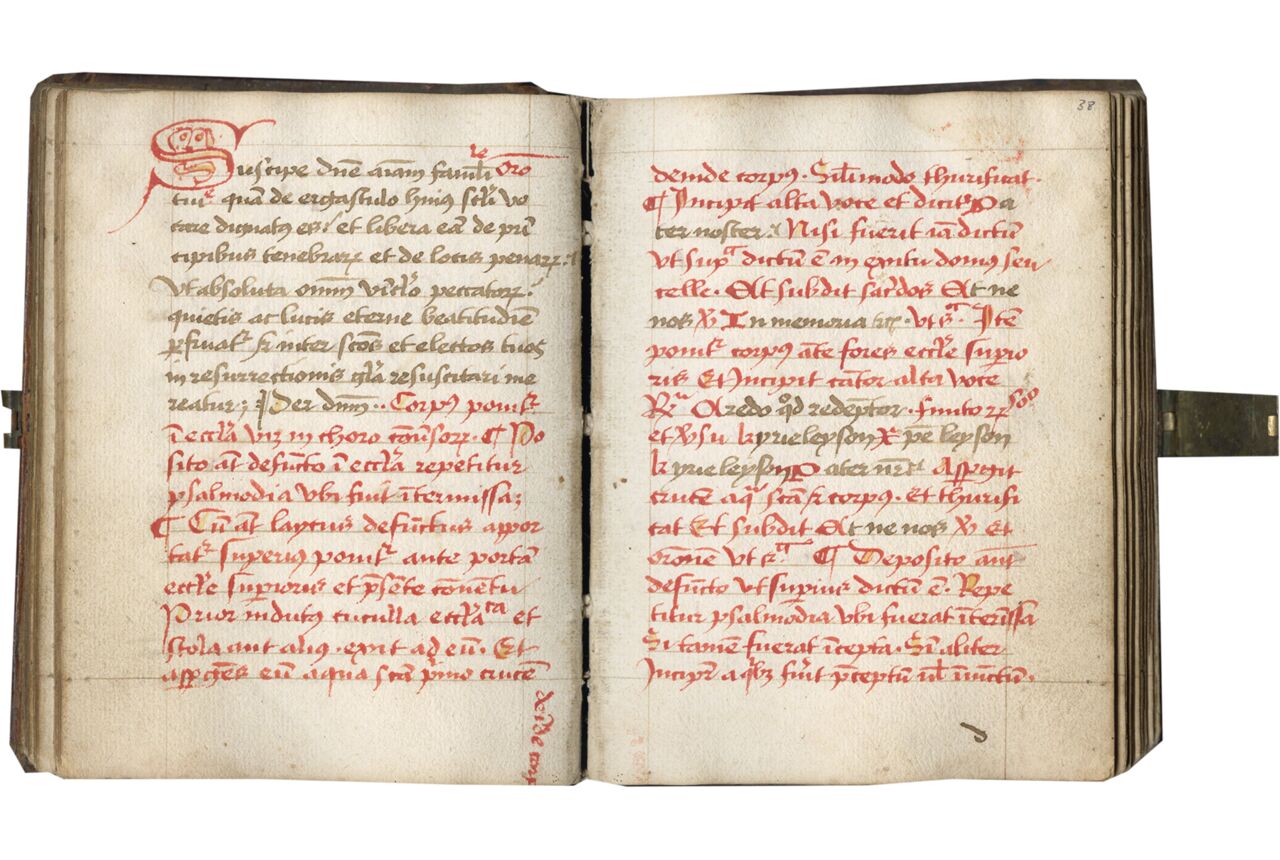 Suscipe dn̄e aīam famuli
le Orō
tui quā de ergastulo huius scl̄i vo
care dignatꝰ es· et libera eā de prīn
cipibus tenebraꝝ et de locis penaꝝ·
Vt absoluta omīm vīcl̄o peccatoꝝ·
quietis ac lucis eterne beatitudīe
ꝑfruatʳ ⁊ inter scōs et electos tuos
in resurrectionis gl̄a resuscitari me
reatur; Per dn̄m·· Corpꝰ ponitʳ
ī eccl̄a viz in choro cōuersoꝝ· ¶ Po
sito āt defūcto ī eccl̄a repetitur
psalmodia vbi fuit ītermissa;
¶ Cū āt laycus defūctus appor
tatʳ superius ponitʳ ante portā
eccl̄e superioris et p̄sente cōuentu
Prior indutus cuculla eccl̄a ca et
stola aut alius· exit ad eū· Et
aspergēs eū aqua scā p̄mo crucē
deīde corp
38
deinde corpꝰ· Sil̄imodo thurificat·
¶ Incipit alta voce et dicit Pa
ter noster· Nisi fuerit iā dictū
vt supᵃ dictū ē in exitu domus seu
celle· At subdit sac̄dos Et ne
nos ℣ In memoria etc· vt sᵃ· Itē
ponitʳ corpꝰ āte fores eccl̄e supio
ris Et Incipit cātor alta voce
Rᵃ Credo qd̄ redēptor· finito ꝶ sōo
et v̄su kyrieleyson Xp̄e leyson
kyrieleyson Pater nr̄ Aspgit
crucē aqᵃ scā ⁊ corpꝰ· Et thurifi
cat Et subdit Et ne nos ℣ Et
orōne vt sᵃ ¶ Deposito āut
defūcto vt superius dictū ē· Repe
titur psalmodia vbi fuerat īterissa
Si tamē fuerat īcepta· Sin aliter
Incipr̄ a qbꝫ fūit p̄ceptū ul̄ iniūctū·